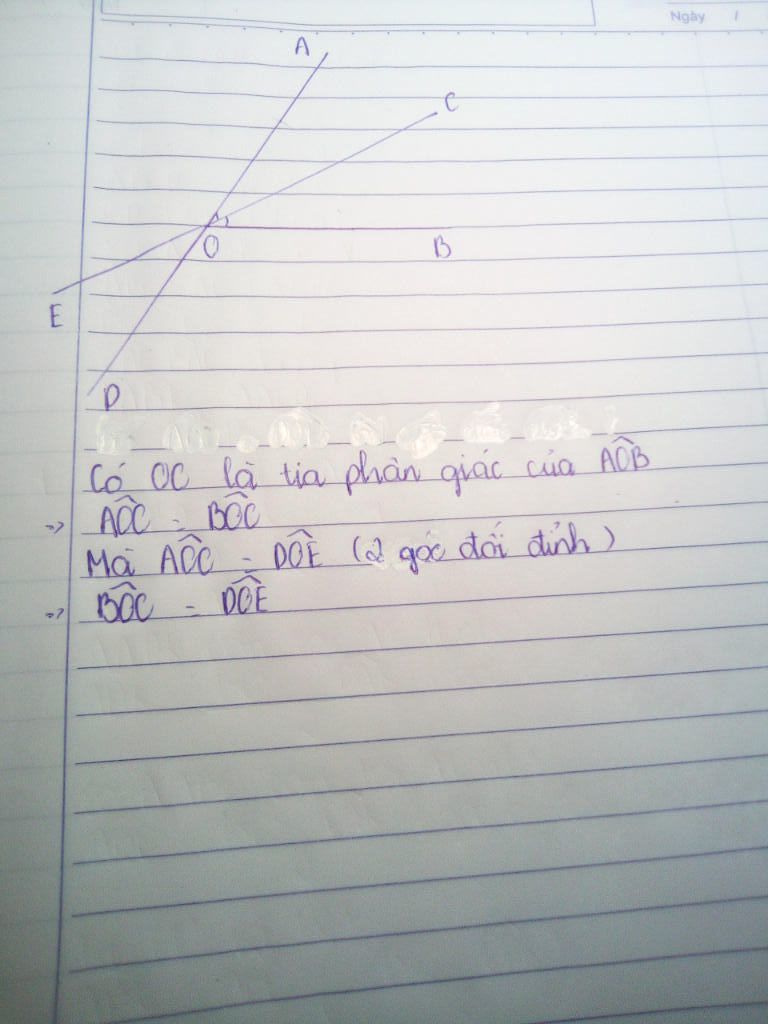 Ngày /
A
C
O
B
E
D
Có OC là tia phân giác của AÔB
=> AÔC = BÔC
Mà AÔC = DÔE (2 góc đối đỉnh)
=> BÔC = DÔE